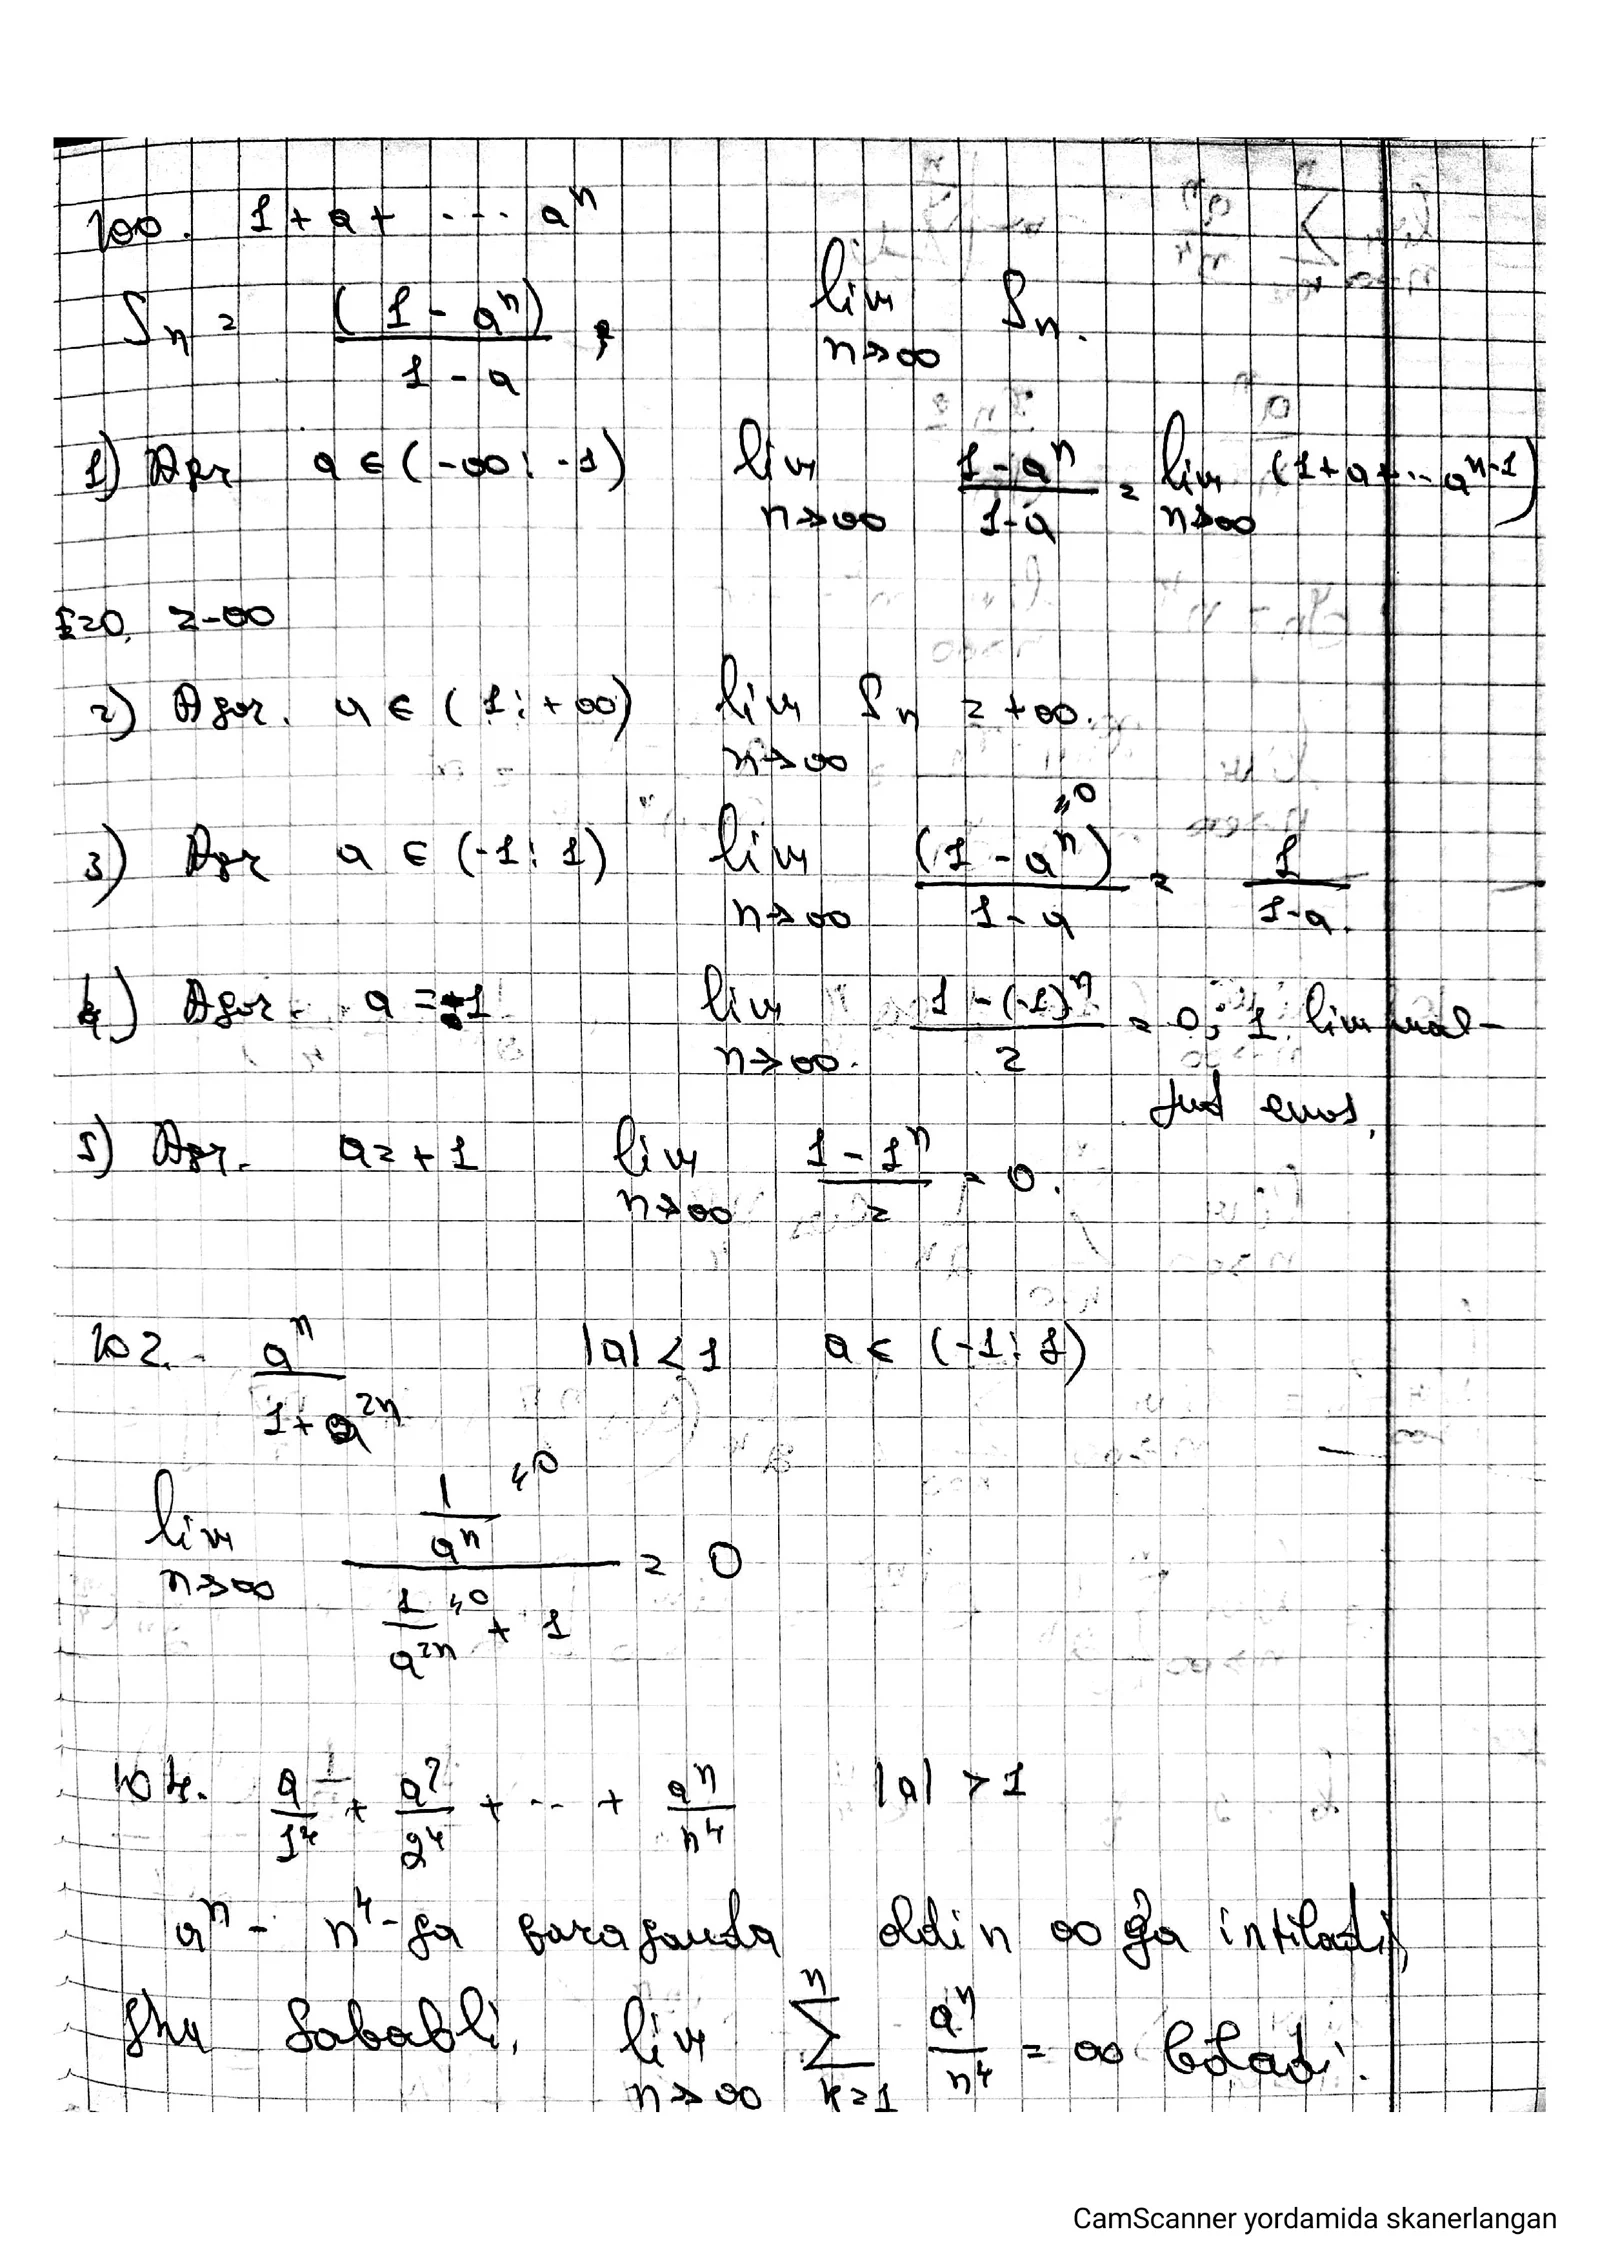 100. 1 + a + ... a^n
S_n = (1 - a^n) / 1 - a ; lim n→∞ S_n.
1) Agr a ∈ (-∞; -1) lim n→∞ 1-a^n / 1-a = lim n→∞ (1+a+...a^n-1)
=0, =-∞
2) Agar. a ∈ (1; +∞) lim n→∞ S_n = +∞.
3) Agr a ∈ (-1; 1) lim n→∞ (1 - a^n)^→0 / 1-a = 1 / 1-a.
4) Agar. a = -1 lim n→∞. 1-(-1)^n / 2 = 0; 1 lim mav-
jud emas.
5) Agr. a = +1 lim n→∞ 1 - 1^n / 2 = 0.
102. a^n / 1 + a^2n |a| < 1 a ∈ (-1; 1)
lim n→∞ 1/a^n →0 / 1/a^2n →0 + 1 = 0
104. a^1/1^4 + a^2/2^4 + ... + a^n/n^4 |a| > 1
a^n - n^4-ga qaraganda oldin ∞ ga intiladi,
Shu sababli, lim n→∞ ∑ k=1 n a^n/n^4 = ∞ bo'ladi.
CamScanner yordamida skanerlangan